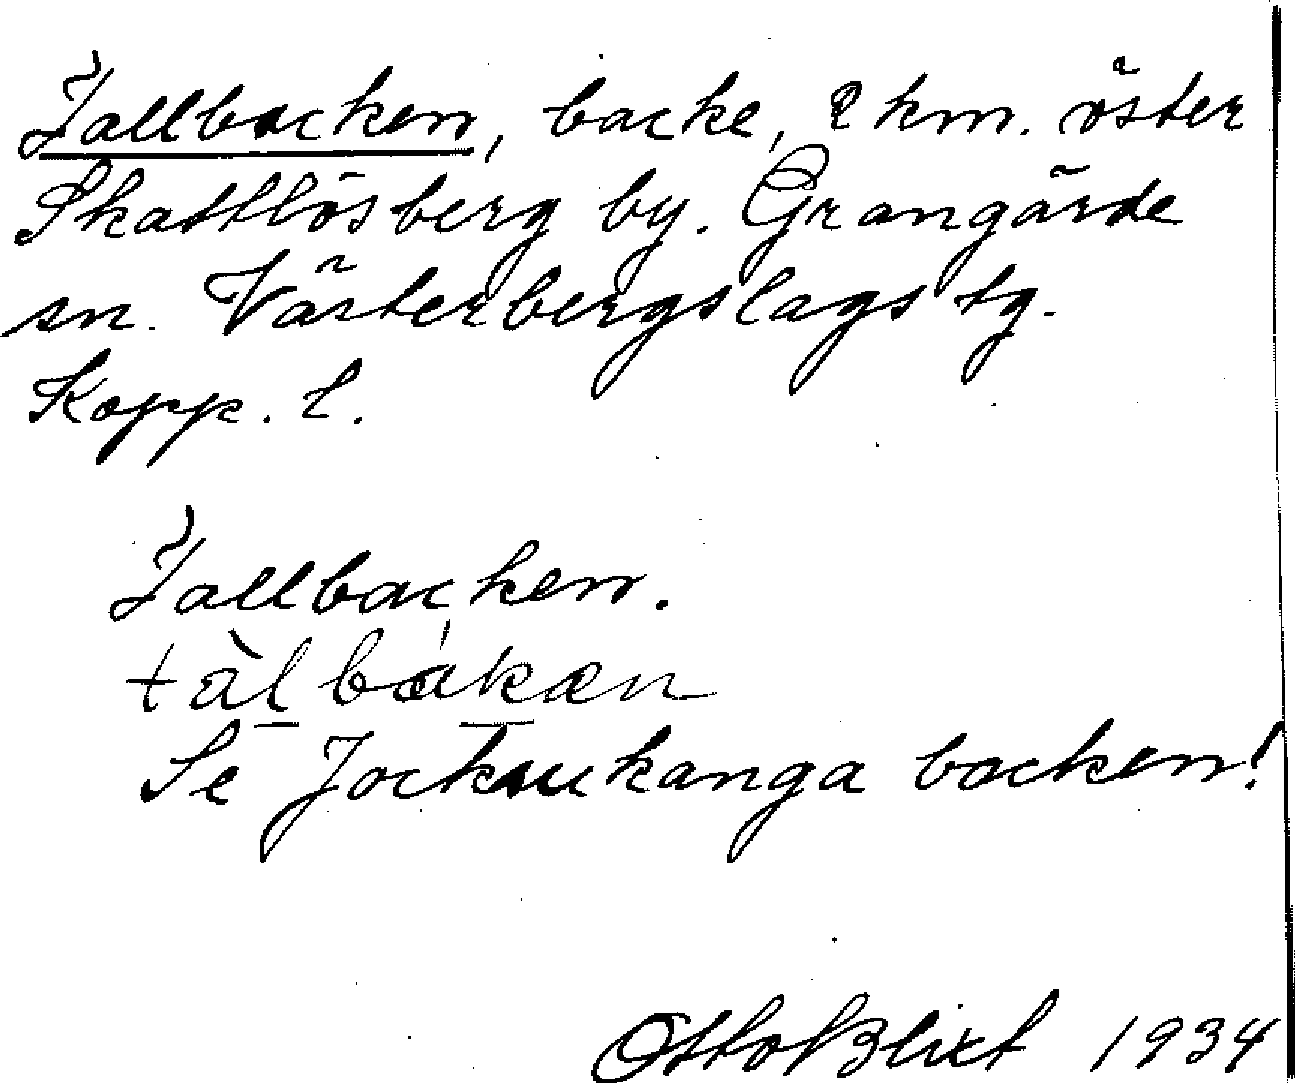 Tallbacken, backe, 2 km. öster
Skattlösberg by. Grangärde
sn. Västerbergslags tg.
Kopp. l.
Tallbacken.
tàlbákæn
Se Jockaukanga backen!
Otto Blixt 1934